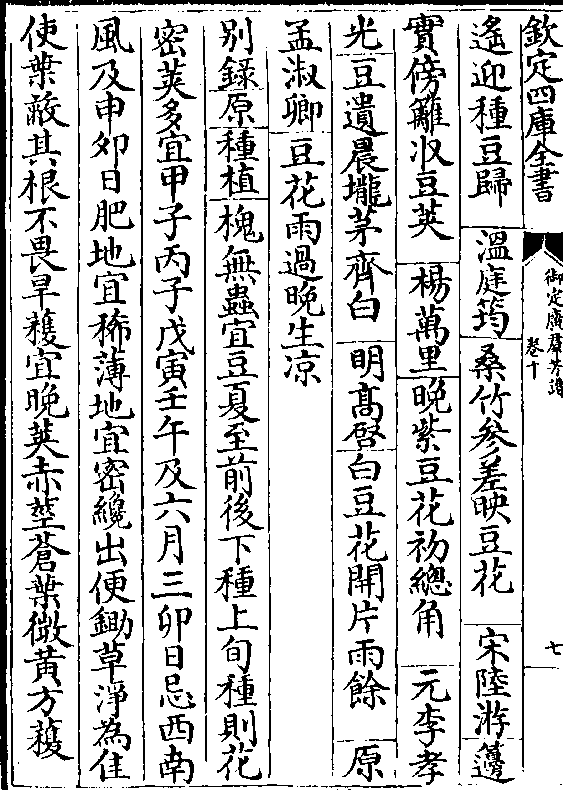 欽定四庫全書
御定廣羣芳譜
卷十
七
遙迎種豆歸　溫庭筠桑竹參差映豆花　宋陸游籩
實傍籬收豆莢　楊萬里晚紫豆花初總角　元李孝
光豆遺晨壠茅齊白　明髙啓白豆花開片雨餘　原
孟淑卿豆花雨過晚生凉
别錄原種植槐無蟲宜豆夏至前後下種上旬種則花
密莢多宜甲子丙子戊寅壬午及六月三卯日忌西南
風及申夘日肥地宜稀薄地宜密纔出便鋤草淨為佳
使葉蔽其根不畏旱穫宜晚莢赤莖蒼葉微黃方穫